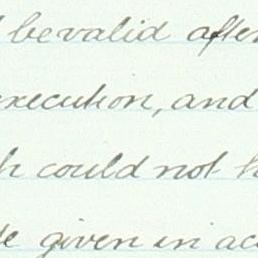 be valid after
execution, and
h could not h
te given in acc